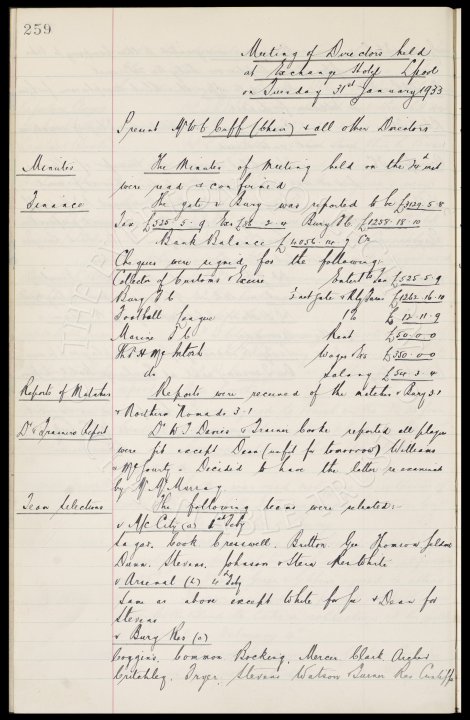 259
Meeting of Directors held
at Exchange Hotel Lpool
on Tuesday 31st January 1933
Present Mr W C Cuff (Chair) & all other Directors
Minutes The Minutes of Meeting held on the 24th inst
were read & confirmed
Finance The gate v Bury was reported to be
Tax £525.5.9 Bury F.C. £1258.18.10
Bank Balance £4056.10.7 Cr
Cheques were signed for the following:
Collector of Customs & Excise Entert Tax £525.5.9
Bury F.C.
Football League 1% £12.11.9
Marine F.C. Rent £50.0.0
Th. H. McIntosh Wages £350.0.0
do Salary
Reports of Matches Reports were received of the matches v Bury 3.1
& Northern Nomads 3-1
Dr & Trainers Report Dr & Trainer Cooke reported all players
were fit except Dean (unfit for tomorrow) Williams
& McGourty. Decided to have the latter re-examined
by Mr McMurray
Team Selections The following teams were selected:
v M/c City (a)
Sagar. Cook Cresswell. Britton. Gee Thomson Geldard
Dunn. Stevens. Johnson & Stein Res White
v Arsenal (h) Feby
Same as above except White for Gee & Dean for
Stevens
v Bury Res (a)
Coggins. Common Bocking. Mercer Clark Archer
Critchley. Fryer. Stevens Watson Turner Res Cunliffe